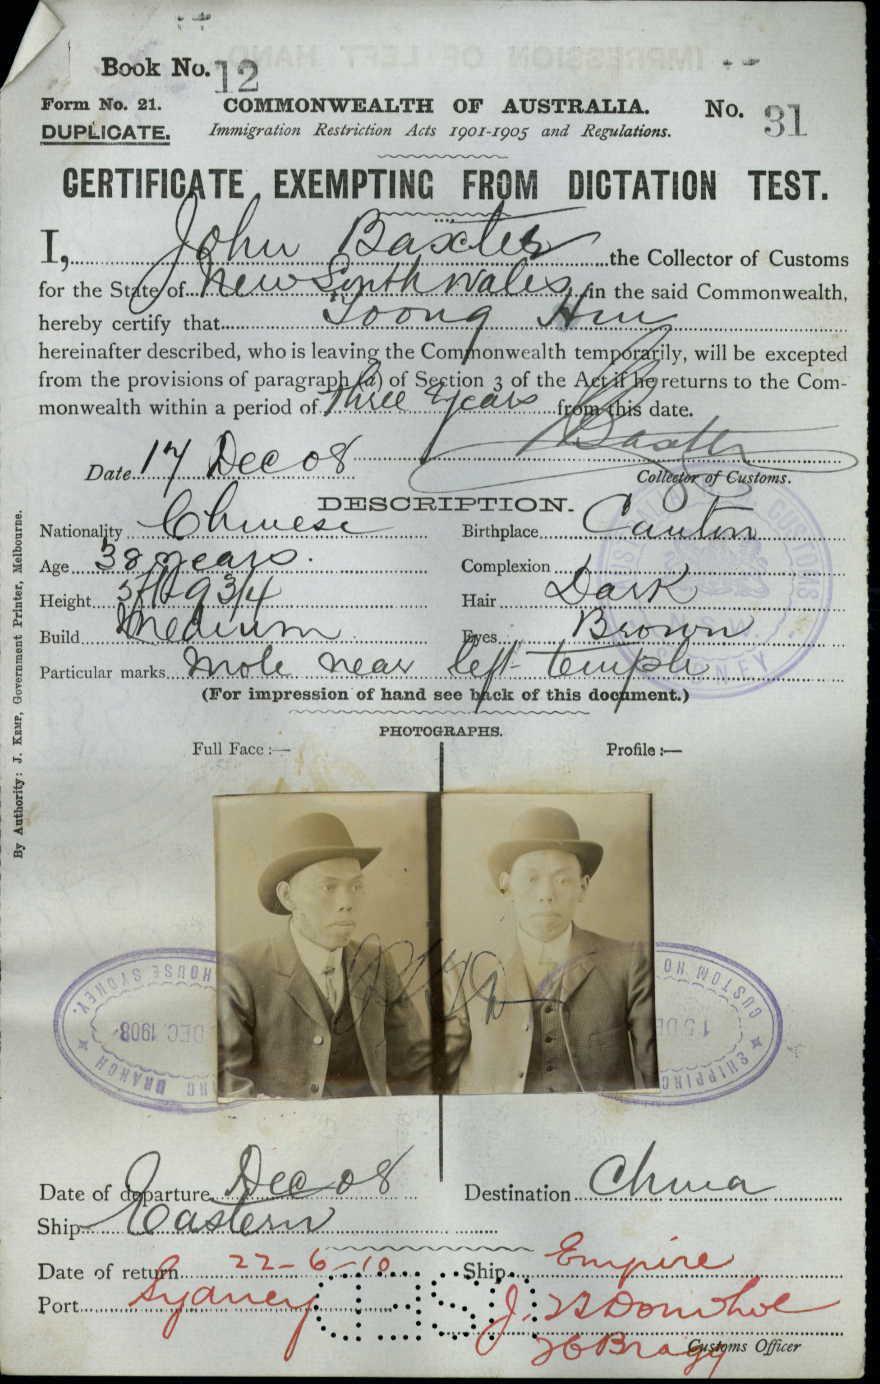 Book No. 12
Form No. 21. COMMONWEALTH OF AUSTRALIA. No. 31
DUPLICATE. Immigration Restriction Acts 1901-1905 and Regulations.
CERTIFICATE EXEMPTING FROM DICTATION TEST.
I, John Baxter the Collector of Customs
for the State of New South Wales in the said Commonwealth,
hereby certify that Yoong Hin
hereinafter described, who is leaving the Commonwealth temporarily, will be excepted
from the provisions of paragraph (a) of Section 3 of the Act if he returns to the Com-
monwealth within a period of three years from this date.
Baxter
Date 17 Dec 08 Collector of Customs.
DESCRIPTION.
Nationality Chinese Birthplace Canton
Age 38 years. Complexion
Height 5ft 9 3/4 Hair Dark
Build Medium Eyes Brown
Particular marks Mole near left temple
(For impression of hand see back of this document.)
PHOTOGRAPHS.
Full Face :— Profile :—
By Authority: J. Kemp, Government Printer, Melbourne.
CUSTOMS
N.S.W.
SYDNEY
HOUSE SYDNEY.
DEC. 1908
BRANCH
CUSTOM HO
15 DE
SHIPPING
Date of departure Dec 08 Destination China
Ship Eastern
Date of return 22-6-10 Ship Empire
Port Sydney
Customs Officer